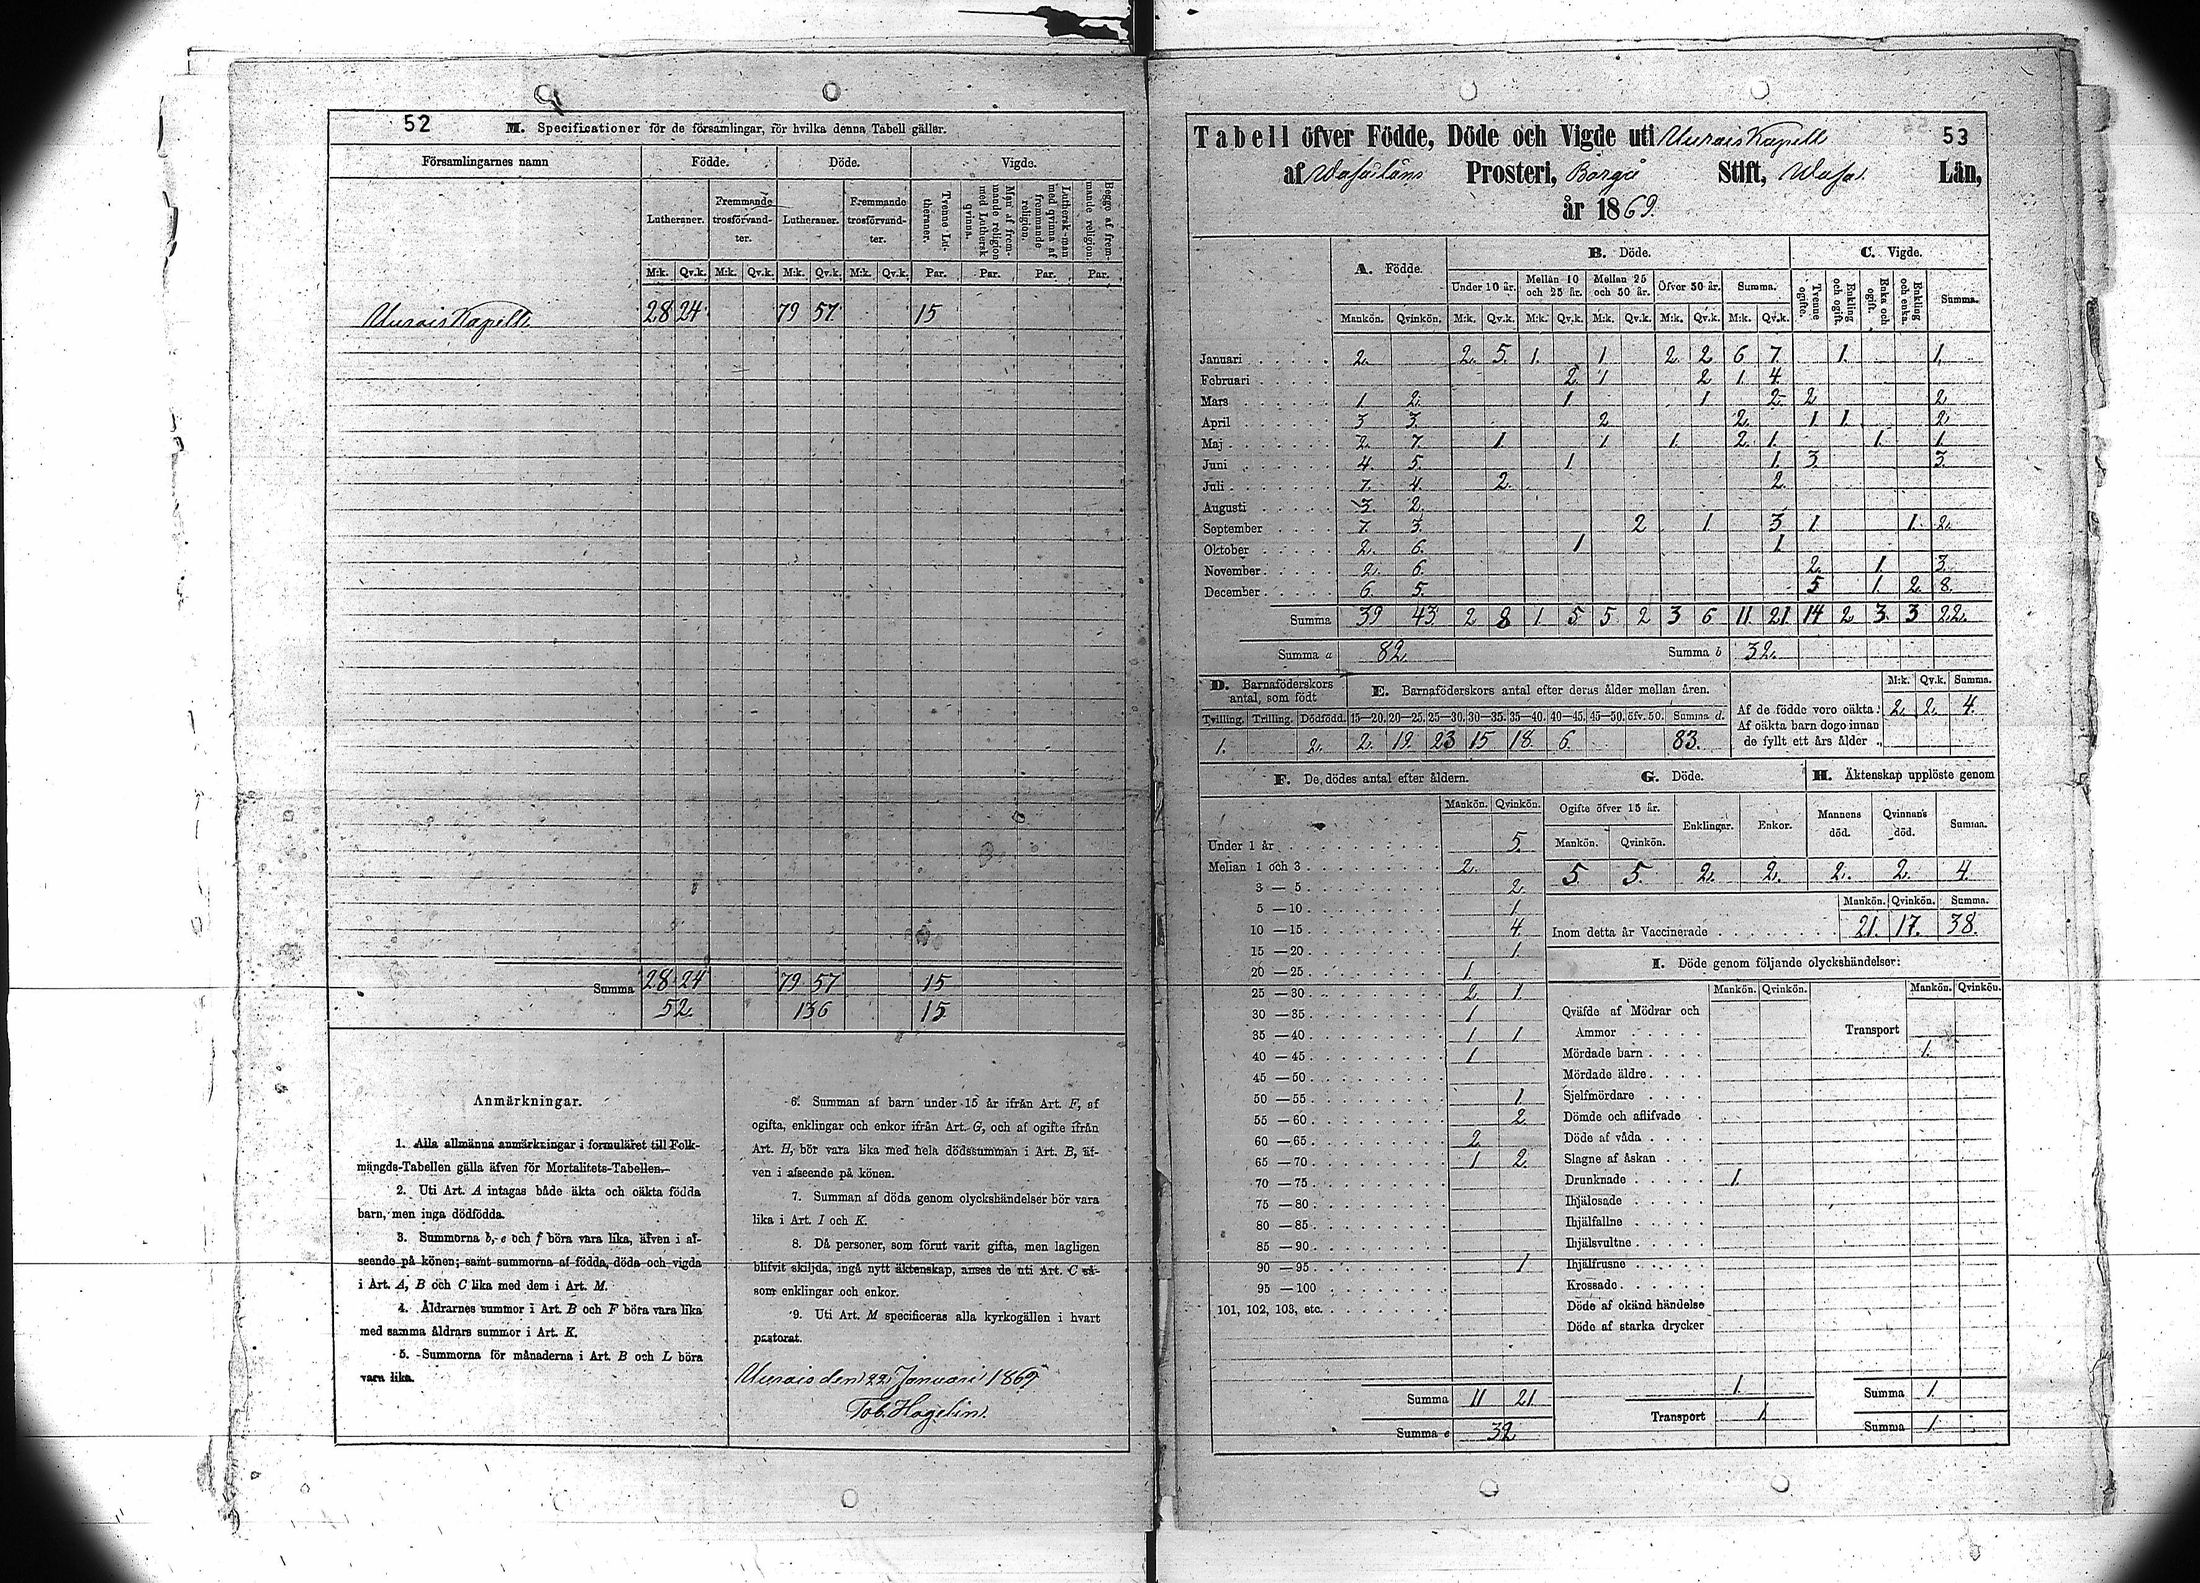 52
M. Specificationer för de församlingar, för hvilka denna Tabell gäller.
Församlingarnes namn
Födde.
Döde.
Vigde.
Lutheraner.
Fremmande trosförvand-ter.
Lutheraner.
Fremmande trosförvand-ter.
Tvenne Lu-theraner.
Man af frem-mande religion med Luthersk qvinna.
Luthersk man med qvinna af fremmande religion.
Begge af frem-mande religion.
M:k. Qv.k. M:k. Qv.k. M:k. Qv.k. M:k. Qv.k. Par. Par. Par. Par.
Aurais Kapell 28 24 79 57 15
Summa 28 24 79 57 15
52 136 15
Anmärkningar.
1. Alla allmänna anmärkningar i formuläret till Folk-
mängds-Tabellen gälla äfven för Mortalitets-Tabellen.
2. Uti Art. A intagas både äkta och oäkta födda
barn, men inga dödfödda.
3. Summorna b, e och f böra vara lika, äfven i af-
seende på könen; samt summorna af födda, döda och vigda
i Art. A, B och C lika med dem i Art. M.
4. Åldrarnes summor i Art. B och F böra vara lika
med samma åldrars summor i Art. K.
5. Summorna för månaderna i Art. B och L böra
vara lika.
6. Summan af barn under 15 år ifrån Art. F, af
ogifta, enklingar och enkor ifrån Art. G, och af ogifte ifrån
Art. H, bör vara lika med hela dödssumman i Art. B, äf-
ven i afseende på könen.
7. Summan af döda genom olyckshändelser bör vara
lika i Art. I och K.
8. Då personer, som förut varit gifta, men lagligen
blifvit skiljda, ingå nytt äktenskap, anses de uti Art. C så-
som enklingar och enkor.
9. Uti Art. M specificeras alla kyrkogällen i hvart
pastorat.
Aurais den 22 Januari 1869
Tob. Hagelin.
Tabell öfver Födde, Döde och Vigde uti Aurais Kapell 53
af Wasa läns Prosteri, Borgå Stift, Wasa Län,
år 1869.
A. Födde.
B. Döde.
C. Vigde.
Under 10 år. Mellan 10 och 25 år. Mellan 25 och 50 år. Öfver 50 år. Summa.
Tvenne ogifte. Enkling och ogift. Enka och ogift. Enkling och enka. Summa.
Mankön. Qvinkön. M:k. Qv.k. M:k. Qv.k. M:k. Qv.k. M:k. Qv.k. M:k. Qv.k.
Januari 2. 2. 5. 1. 1 2. 2 6 7. 1. 1.
Februari 2. 1 2 1. 4.
Mars 1 2. 1 1. 2. 2 2.
April 3 3. 2 2. 1 1. 2.
Maj 2. 7. 1. 1 1. 2. 1. 1. 1.
Juni 4. 5. 1 1. 3. 3.
Juli 7. 4. 2. 2.
Augusti 3. 2.
September 7. 3. 2 1. 3 1. 1. 2.
Oktober 2. 6. 1 1.
November 2. 6. 2. 1. 3.
December 6. 5. 5 1. 2. 8.
Summa 39 43 2 8 1 5 5 2 3 6 11 21 14 2 3 3 22.
Summa a 82. Summa b 32.
D. Barnaföderskors antal, som födt
E. Barnaföderskors antal efter deras ålder mellan åren.
M:k. Qv.k. Summa.
Tvilling. Trilling. Dödfödd. 15—20. 20—25. 25—30. 30—35. 35—40. 40—45. 45—50. öfv. 50. Summa d.
1. 2. 2. 19. 23 15 18. 6. 83.
Af de födde voro oäkta: 2. 2. 4.
Af oäkta barn dogo innan
de fyllt ett års ålder
F. De dödes antal efter åldern.
Mankön. Qvinkön.
Under 1 år 5.
Mellan 1 och 3 2.
3 — 5 2.
5 — 10 1.
10 — 15 4.
15 — 20 1.
20 — 25 1.
25 — 30 2 1.
30 — 35 1
35 — 40 1 1
40 — 45 1
45 — 50
50 — 55 1.
55 — 60 2.
60 — 65 2
65 — 70 1 2.
70 — 75
75 — 80
80 — 85
85 — 90
90 — 95 1
95 — 100
101, 102, 103, etc.
Summa 11 21
Summa e 32.
G. Döde.
Ogifte öfver 15 år. Enklingar. Enkor.
Mankön. Qvinkön.
5 5. 2. 2.
H. Äktenskap upplöste genom
Mannens död. Qvinnans död. Summa.
2. 2. 4.
Mankön. Qvinkön. Summa.
Inom detta år Vaccinerade 21. 17. 38.
I. Döde genom följande olyckshändelser:
Mankön. Qvinkön. Mankön. Qvinkön.
Qväfde af Mödrar och
Ammor
Transport
1.
Mördade barn
Mördade äldre
Sjelfmördare
Dömde och aflifvade
Döde af våda
Slagne af åskan
Drunknade 1.
Ihjälosade
Ihjälfallne
Ihjälsvultne
Ihjälfrusne
Krossade
Döde af okänd händelse
Döde af starka drycker
1. Summa 1.
Transport 1 Summa 1.
53